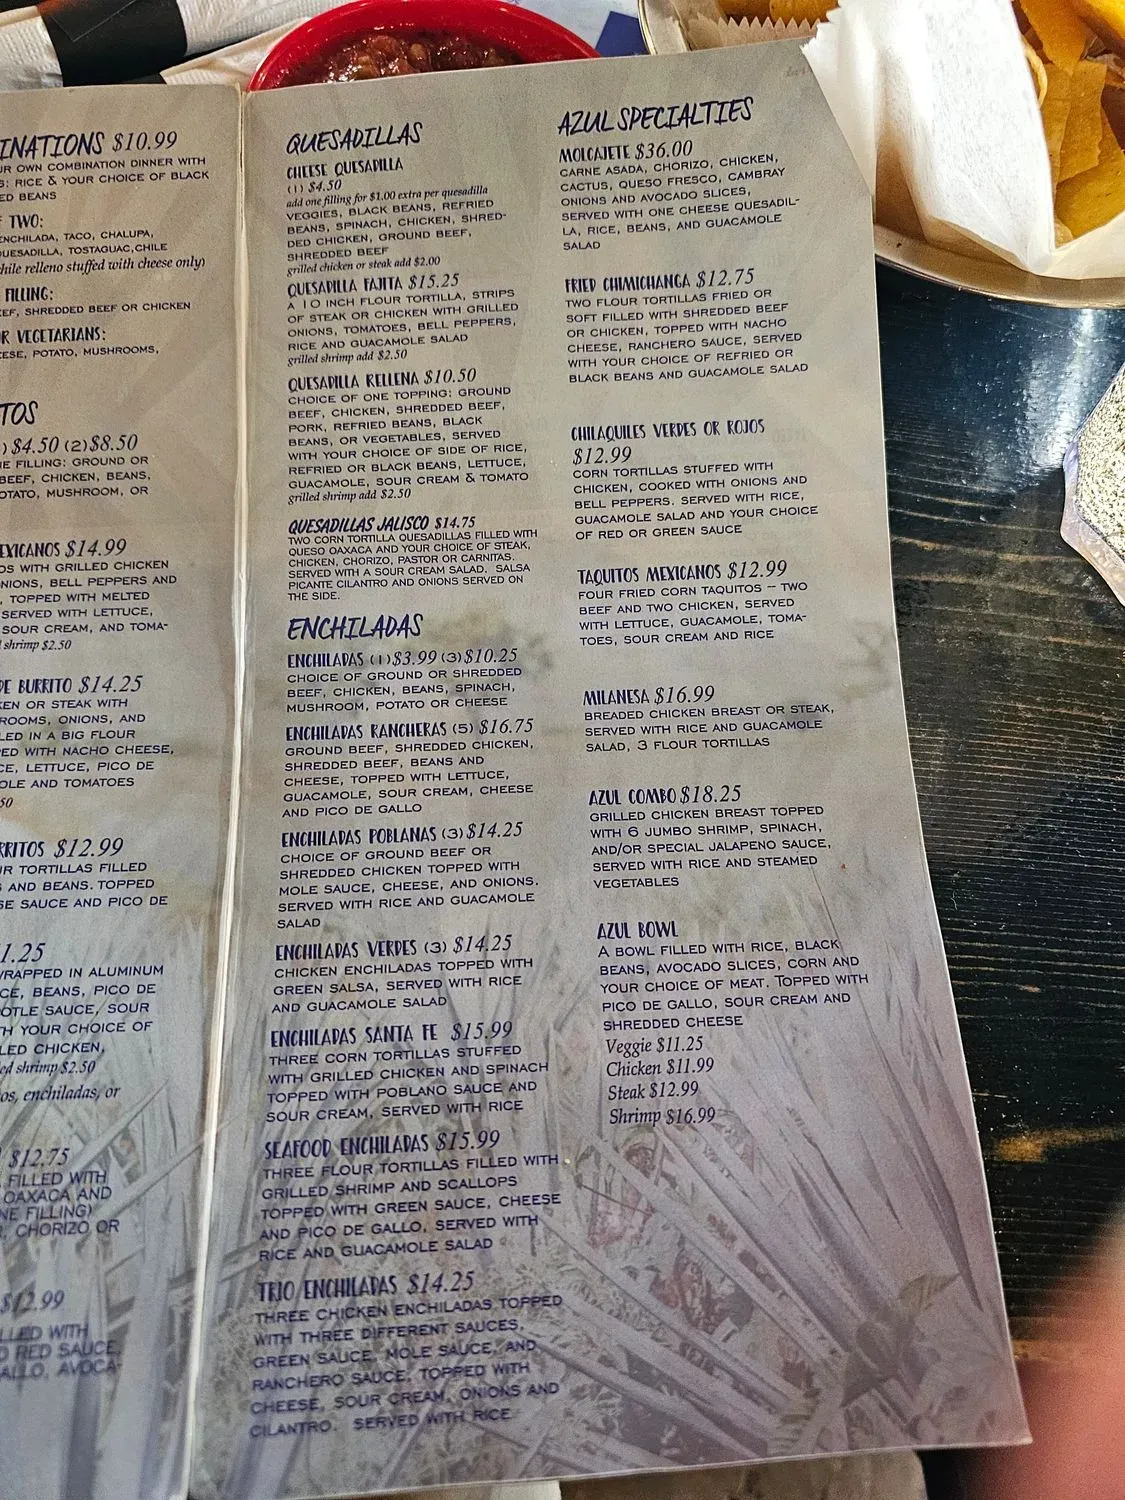 INATIONS $10.99
UR OWN COMBINATION DINNER WITH
S: RICE & YOUR CHOICE OF BLACK
ED BEANS
F TWO:
ENCHILADA, TACO, CHALUPA,
QUESADILLA, TOSTAGUAC,CHILE
hile relleno stuffed with cheese only)
FILLING:
EF, SHREDDED BEEF OR CHICKEN
R VEGETARIANS:
EESE, POTATO, MUSHROOMS,
TOS
) $4.50 (2)$8.50
NE FILLING: GROUND OR
BEEF, CHICKEN, BEANS,
OTATO, MUSHROOM, OR
EXICANOS $14.99
OS WITH GRILLED CHICKEN
NIONS, BELL PEPPERS AND
, TOPPED WITH MELTED
SERVED WITH LETTUCE,
SOUR CREAM, AND TOMA-
d shrimp $2.50
DE BURRITO $14.25
KEN OR STEAK WITH
ROOMS, ONIONS, AND
LED IN A BIG FLOUR
PED WITH NACHO CHEESE,
CE, LETTUCE, PICO DE
OLE AND TOMATOES
50
RRITOS $12.99
UR TORTILLAS FILLED
S AND BEANS. TOPPED
SE SAUCE AND PICO DE
1.25
WRAPPED IN ALUMINUM
CE, BEANS, PICO DE
OTLE SAUCE, SOUR
TH YOUR CHOICE OF
LED CHICKEN,
ed shrimp $2.50
os, enchiladas, or
$12.75
FILLED WITH
OAXACA AND
NE FILLING)
R, CHORIZO OR
$12.99
LLED WITH
D RED SAUCE,
ALLO, AVOCA-
QUESADILLAS
CHEESE QUESADILLA
(1) $4.50
add one filling for $1.00 extra per quesadilla
VEGGIES, BLACK BEANS, REFRIED
BEANS, SPINACH, CHICKEN, SHRED-
DED CHICKEN, GROUND BEEF,
SHREDDED BEEF
grilled chicken or steak add $2.00
QUESADILLA FAJITA $15.25
A 10 INCH FLOUR TORTILLA, STRIPS
OF STEAK OR CHICKEN WITH GRILLED
ONIONS, TOMATOES, BELL PEPPERS,
RICE AND GUACAMOLE SALAD
grilled shrimp add $2.50
QUESADILLA RELLENA $10.50
CHOICE OF ONE TOPPING: GROUND
BEEF, CHICKEN, SHREDDED BEEF,
PORK, REFRIED BEANS, BLACK
BEANS, OR VEGETABLES, SERVED
WITH YOUR CHOICE OF SIDE OF RICE,
REFRIED OR BLACK BEANS, LETTUCE,
GUACAMOLE, SOUR CREAM & TOMATO
grilled shrimp add $2.50
QUESADILLAS JALISCO $14.75
TWO CORN TORTILLA QUESADILLAS FILLED WITH
QUESO OAXACA AND YOUR CHOICE OF STEAK,
CHICKEN, CHORIZO, PASTOR OR CARNITAS.
SERVED WITH A SOUR CREAM SALAD. SALSA
PICANTE CILANTRO AND ONIONS SERVED ON
THE SIDE.
ENCHILADAS
ENCHILADAS (1)$3.99 (3)$10.25
CHOICE OF GROUND OR SHREDDED
BEEF, CHICKEN, BEANS, SPINACH,
MUSHROOM, POTATO OR CHEESE
ENCHILADAS RANCHERAS (5) $16.75
GROUND BEEF, SHREDDED CHICKEN,
SHREDDED BEEF, BEANS AND
CHEESE, TOPPED WITH LETTUCE,
GUACAMOLE, SOUR CREAM, CHEESE
AND PICO DE GALLO
ENCHILADAS POBLANAS (3)$14.25
CHOICE OF GROUND BEEF OR
SHREDDED CHICKEN TOPPED WITH
MOLE SAUCE, CHEESE, AND ONIONS.
SERVED WITH RICE AND GUACAMOLE
SALAD
ENCHILADAS VERDES (3) $14.25
CHICKEN ENCHILADAS TOPPED WITH
GREEN SALSA, SERVED WITH RICE
AND GUACAMOLE SALAD
ENCHILADAS SANTA FE $15.99
THREE CORN TORTILLAS STUFFED
WITH GRILLED CHICKEN AND SPINACH
TOPPED WITH POBLANO SAUCE AND
SOUR CREAM, SERVED WITH RICE
SEAFOOD ENCHILADAS $15.99
THREE FLOUR TORTILLAS FILLED WITH
GRILLED SHRIMP AND SCALLOPS
TOPPED WITH GREEN SAUCE, CHEESE
AND PICO DE GALLO, SERVED WITH
RICE AND GUACAMOLE SALAD
TRIO ENCHILADAS $14.25
THREE CHICKEN ENCHILADAS TOPPED
WITH THREE DIFFERENT SAUCES,
GREEN SAUCE, MOLE SAUCE, AND
RANCHERO SAUCE, TOPPED WITH
CHEESE, SOUR CREAM, ONIONS AND
CILANTRO. SERVED WITH RICE
AZUL SPECIALTIES
MOLCAJETE $36.00
CARNE ASADA, CHORIZO, CHICKEN,
CACTUS, QUESO FRESCO, CAMBRAY
ONIONS AND AVOCADO SLICES,
SERVED WITH ONE CHEESE QUESADIL-
LA, RICE, BEANS, AND GUACAMOLE
SALAD
FRIED CHIMICHANGA $12.75
TWO FLOUR TORTILLAS FRIED OR
SOFT FILLED WITH SHREDDED BEEF
OR CHICKEN, TOPPED WITH NACHO
CHEESE, RANCHERO SAUCE, SERVED
WITH YOUR CHOICE OF REFRIED OR
BLACK BEANS AND GUACAMOLE SALAD
CHILAQUILES VERDES OR ROJOS
$12.99
CORN TORTILLAS STUFFED WITH
CHICKEN, COOKED WITH ONIONS AND
BELL PEPPERS. SERVED WITH RICE,
GUACAMOLE SALAD AND YOUR CHOICE
OF RED OR GREEN SAUCE
TAQUITOS MEXICANOS $12.99
FOUR FRIED CORN TAQUITOS – TWO
BEEF AND TWO CHICKEN, SERVED
WITH LETTUCE, GUACAMOLE, TOMA-
TOES, SOUR CREAM AND RICE
MILANESA $16.99
BREADED CHICKEN BREAST OR STEAK,
SERVED WITH RICE AND GUACAMOLE
SALAD, 3 FLOUR TORTILLAS
AZUL COMBO $18.25
GRILLED CHICKEN BREAST TOPPED
WITH 6 JUMBO SHRIMP, SPINACH,
AND/OR SPECIAL JALAPENO SAUCE,
SERVED WITH RICE AND STEAMED
VEGETABLES
AZUL BOWL
A BOWL FILLED WITH RICE, BLACK
BEANS, AVOCADO SLICES, CORN AND
YOUR CHOICE OF MEAT. TOPPED WITH
PICO DE GALLO, SOUR CREAM AND
SHREDDED CHEESE
Veggie $11.25
Chicken $11.99
Steak $12.99
Shrimp $16.99